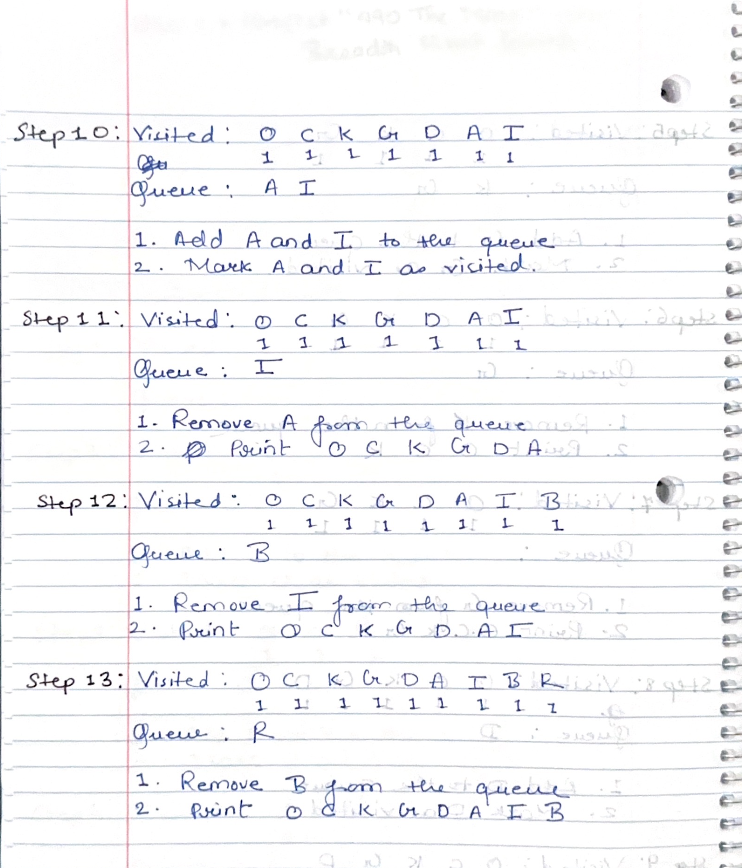 Step 10: Visited: O C K G D A I
1 1 1 1 1 1 1
Queue: A I
1. Add A and I to the queue
2. Mark A and I as visited.
Step 11: Visited: O C K G D A I
1 1 1 1 1 1 1
Queue: I
1. Remove A from the queue
2. Print O C K G D A
Step 12: Visited: O C K G D A I B
1 1 1 1 1 1 1 1
Queue: B
1. Remove I from the queue
2. Print O C K G D. A I
Step 13: Visited: O C K G D A I B R
1 1 1 1 1 1 1 1 1
Queue: R
1. Remove B from the queue
2. Print O C K G D A I B